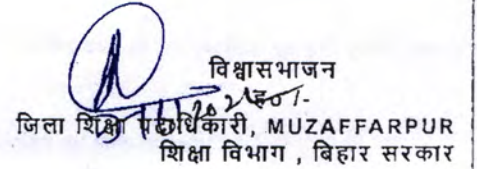 विश्वासभाजन
ह०/-
जिला शिक्षा पदाधिकारी, MUZAFFARPUR
शिक्षा विभाग , बिहार सरकार